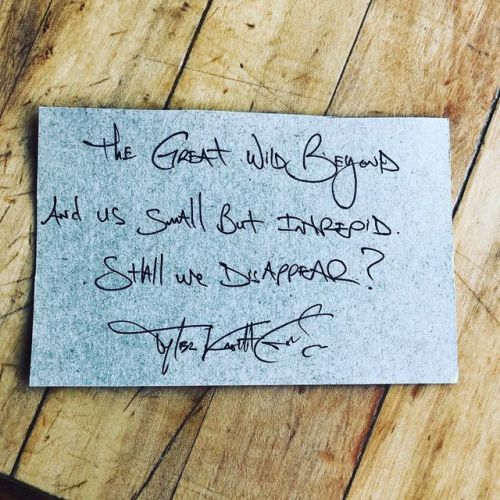 The Great Wild Beyond
And us small But INTREPID.
Shall we DisAPPEAR?
Tyler Knott Gregson